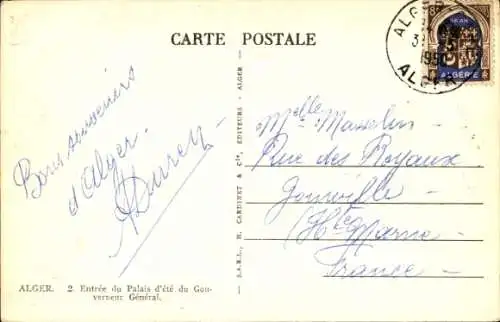 CARTE POSTALE
ALGER
1950
ALGER
ALGÉRIE
Bons souvenirs
d'Alger.
Melle Masselin
Rue des Royaux
Joinville
Hte Marne
France
S.A.R.L., H. CARDINET & Cie, ÉDITEURS - ALGER
ALGER. 2. Entrée du Palais d'été du Gou-
verneur Général.